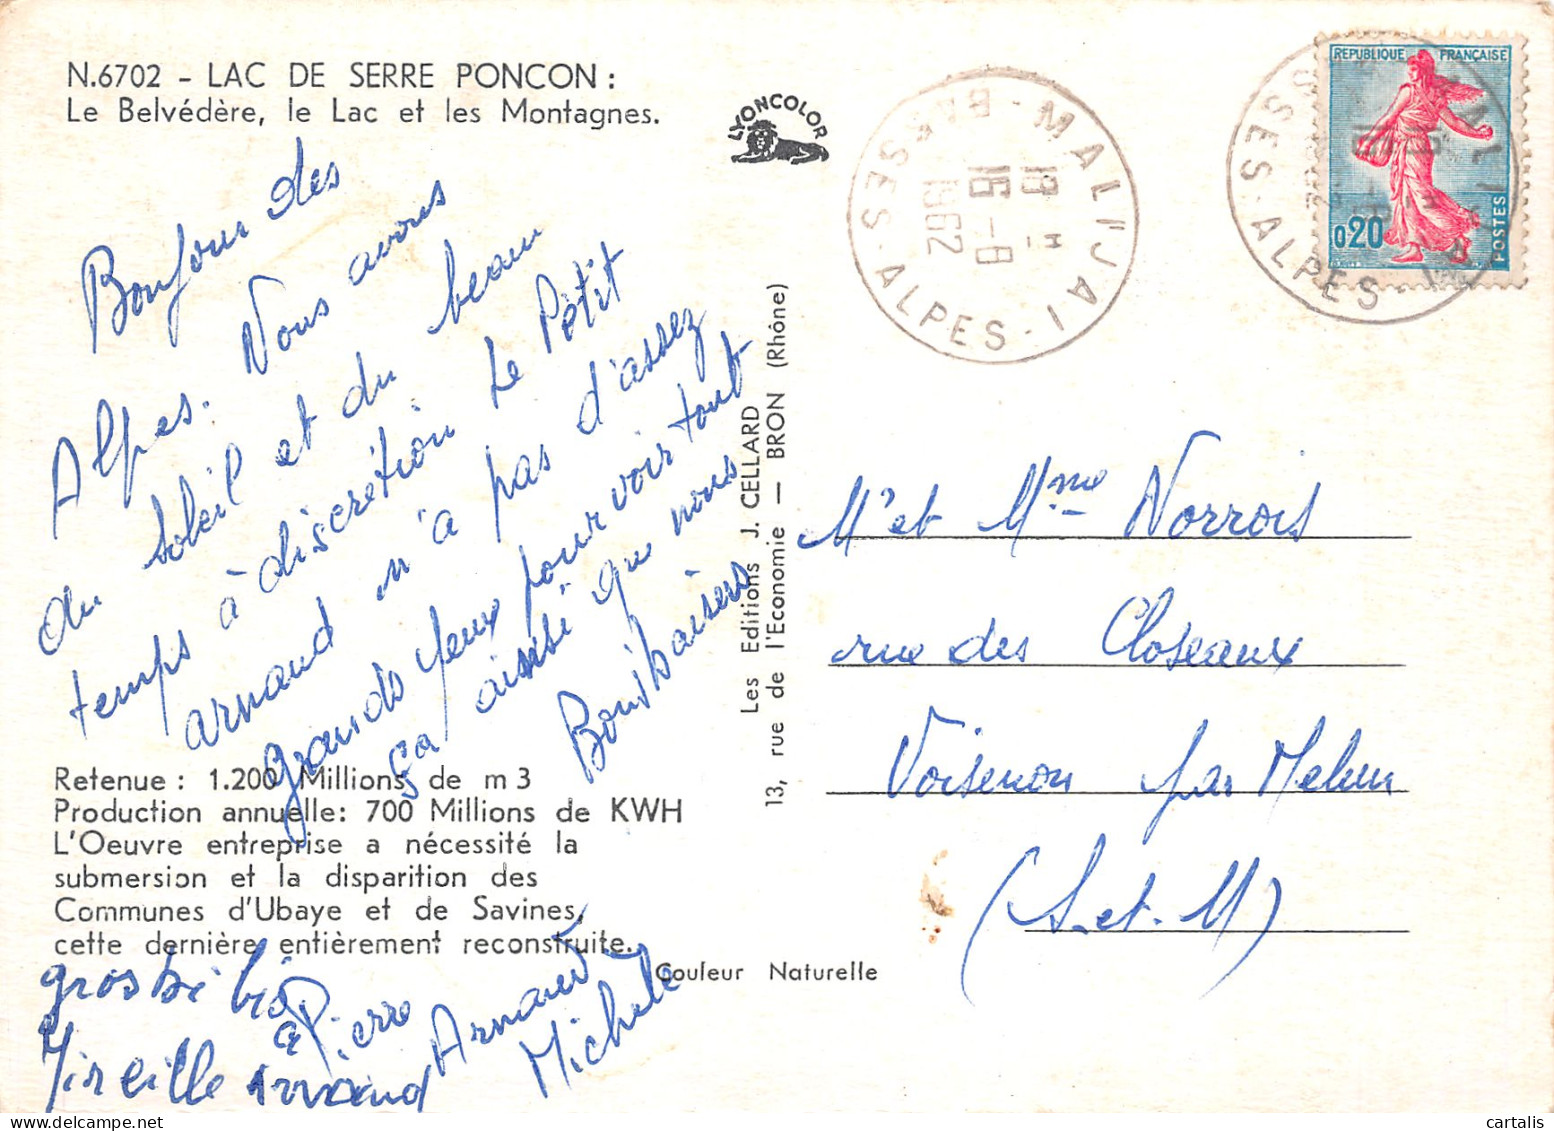 N.6702 - LAC DE SERRE PONCON :
Le Belvédère, le Lac et les Montagnes.
LYONCOLOR
Bonjour des
Alpes. Nous avons
du soleil et du beau
temps à discrétion Le Petit
arnaud n'a pas d'assez
grands yeux pour voir tout
ça aissi que nous
Bons baisers
Retenue : 1.200 Millions de m3
Production annuelle: 700 Millions de KWH
L'Oeuvre entreprise a nécessité la
submersion et la disparition des
Communes d'Ubaye et de Savines,
cette dernière entièrement reconstruite.
Couleur Naturelle
gros
Pierre
Arnaud
Michele
Mireille
Les Editions J. CELLARD
13, rue de l'Economie — BRON (Rhône)
MALIJAI
BASSES-ALPES
18 H
16-8
1962
REPUBLIQUE FRANÇAISE
0,20
POSTES
BASSES-ALPES
Mr et Mme Norrois
rue des Closeaux
Voisenon par Melun
(S.et.M)
cartalis